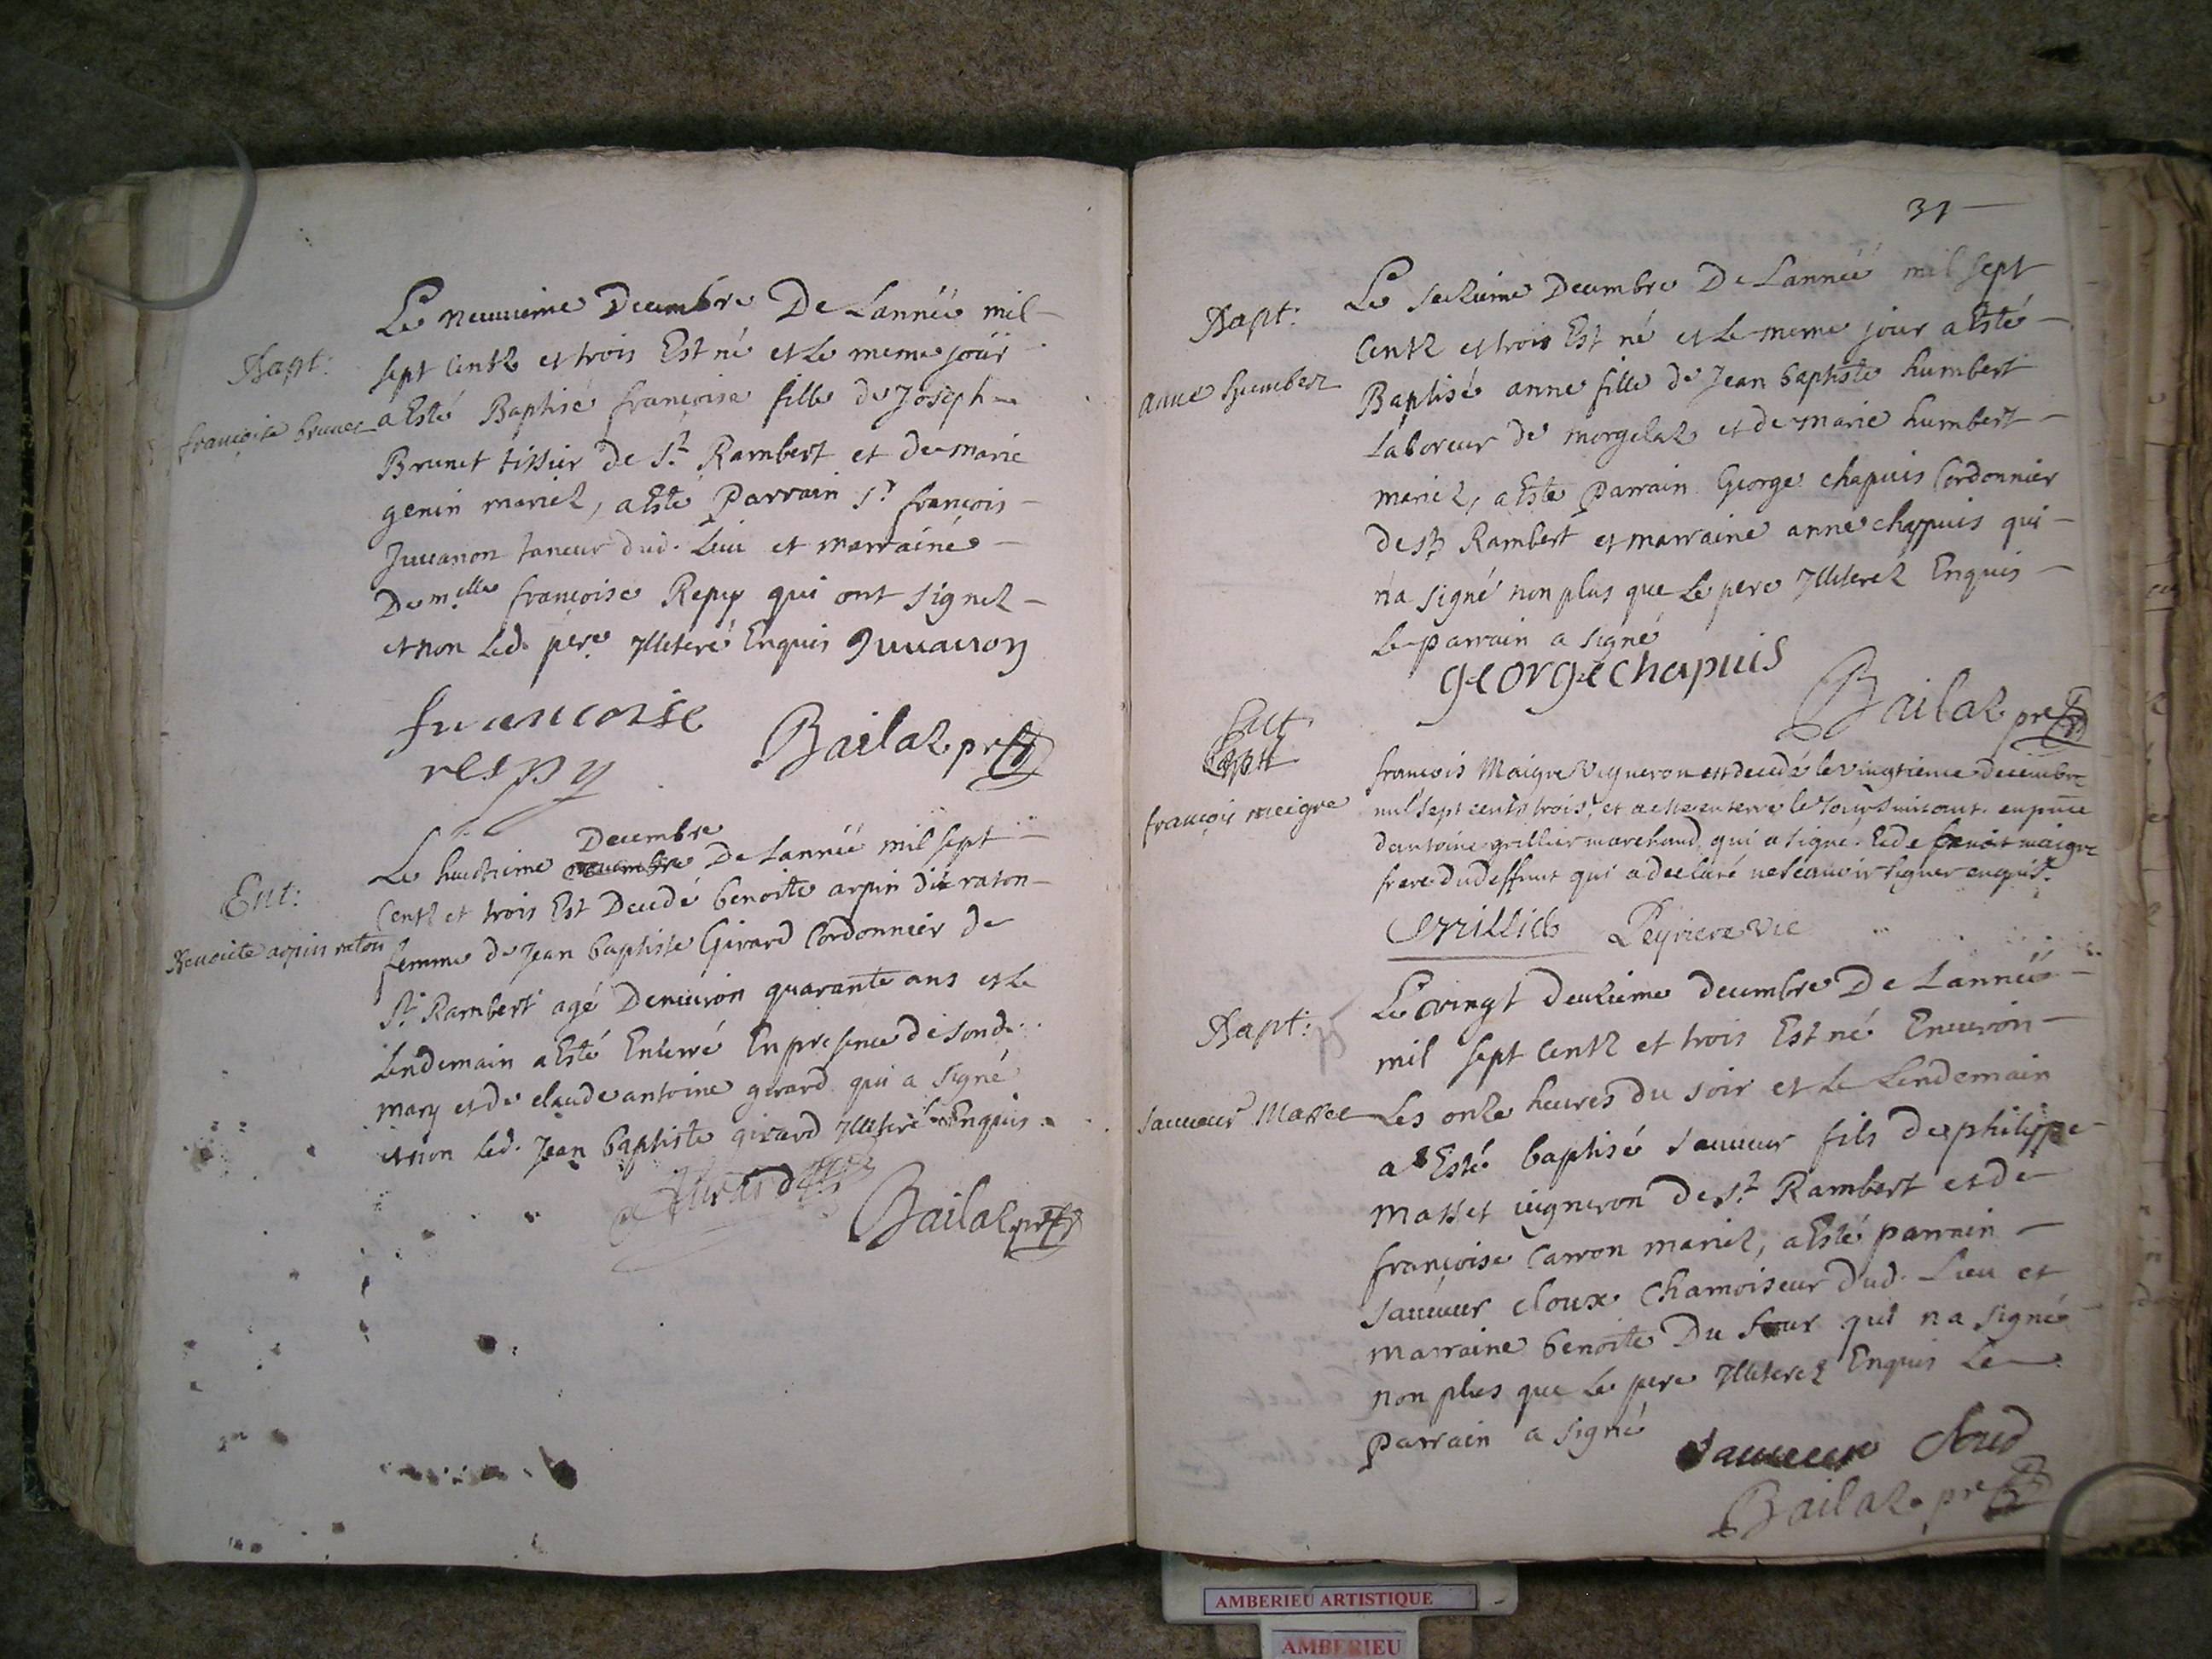 Bapt:
françoise brunet
Le neuuieme Decembre De Lannéé mil
sept Centz et trois Est né et Le meme jour
a Esté Baptisé françoise fille de Joseph
Brunet tissier de St Rambert et de marie
genin mariez, a Esté Parrain Sr françois
Juuanon taneur dud. Lieu et marraine
Demelle françoise Repy qui ont signez
et non Led. pere Illiteré Enquis Juuanon
francoise
respy
Bailaz pre
Ent:
Benoite arpin raton
Decembre
Le huictieme De Lannéé mil sept
Centz et trois Est Decedé benoite arpin dit raton
femme de Jean baptiste Girard Cordonnier de
St Rambert agé Denuiron quarante ans et Le
Lendemain a Esté Enterré En presence de sond.
mary et de claude antoine girard qui a signé
et non Led. Jean baptiste girard Illiteré Enquis
Girard
Bailaz pre
31
Bapt:
anne humbert
Le seizieme Decembre De Lannéé mil sept
Centz et trois Est né et Le meme jour a Esté
Baptisé anne fille de Jean baptiste humbert
Laboreur de morgelaz et de marie humbert
mariez, a Esté Parrain George chapuis Cordonnier
de St Rambert et marraine anne chappuis qui
n'a signé non plus que Le pere Illiterez Enquis
Le parrain a signé
george chapuis
Bailaz pre
françois meigre
francois Maigre Vigneron est decedé le vingtieme decembre
mil sept cents trois, et a esté enterré le Jour suiuant. en pnce
dantoine grillier marchand qui a signé. Et de benoit maigre
frere dud deffunt qui a declaré ne scauoir signer enquis.
Peyriere vic
Bapt:
sauueur Masset
Le vingt deuzieme decembre De Lannéé
mil sept Centz et trois Est né Enuiron
Les onze heures du soir et le Lendemain
a Esté baptisé sauueur fils de philippe
masset uigneron de St Rambert et de
françoise Carron mariez, a Esté parrain
sauueur cloux Chamoiseur dud. Lieu et
marraine benoite Du four qui n a signé
non plus que Le pere Illiterez Enquis Le
parrain a signé
sauueur
Bailaz pre
AMBERIEU ARTISTIQUE
AMBERIEU